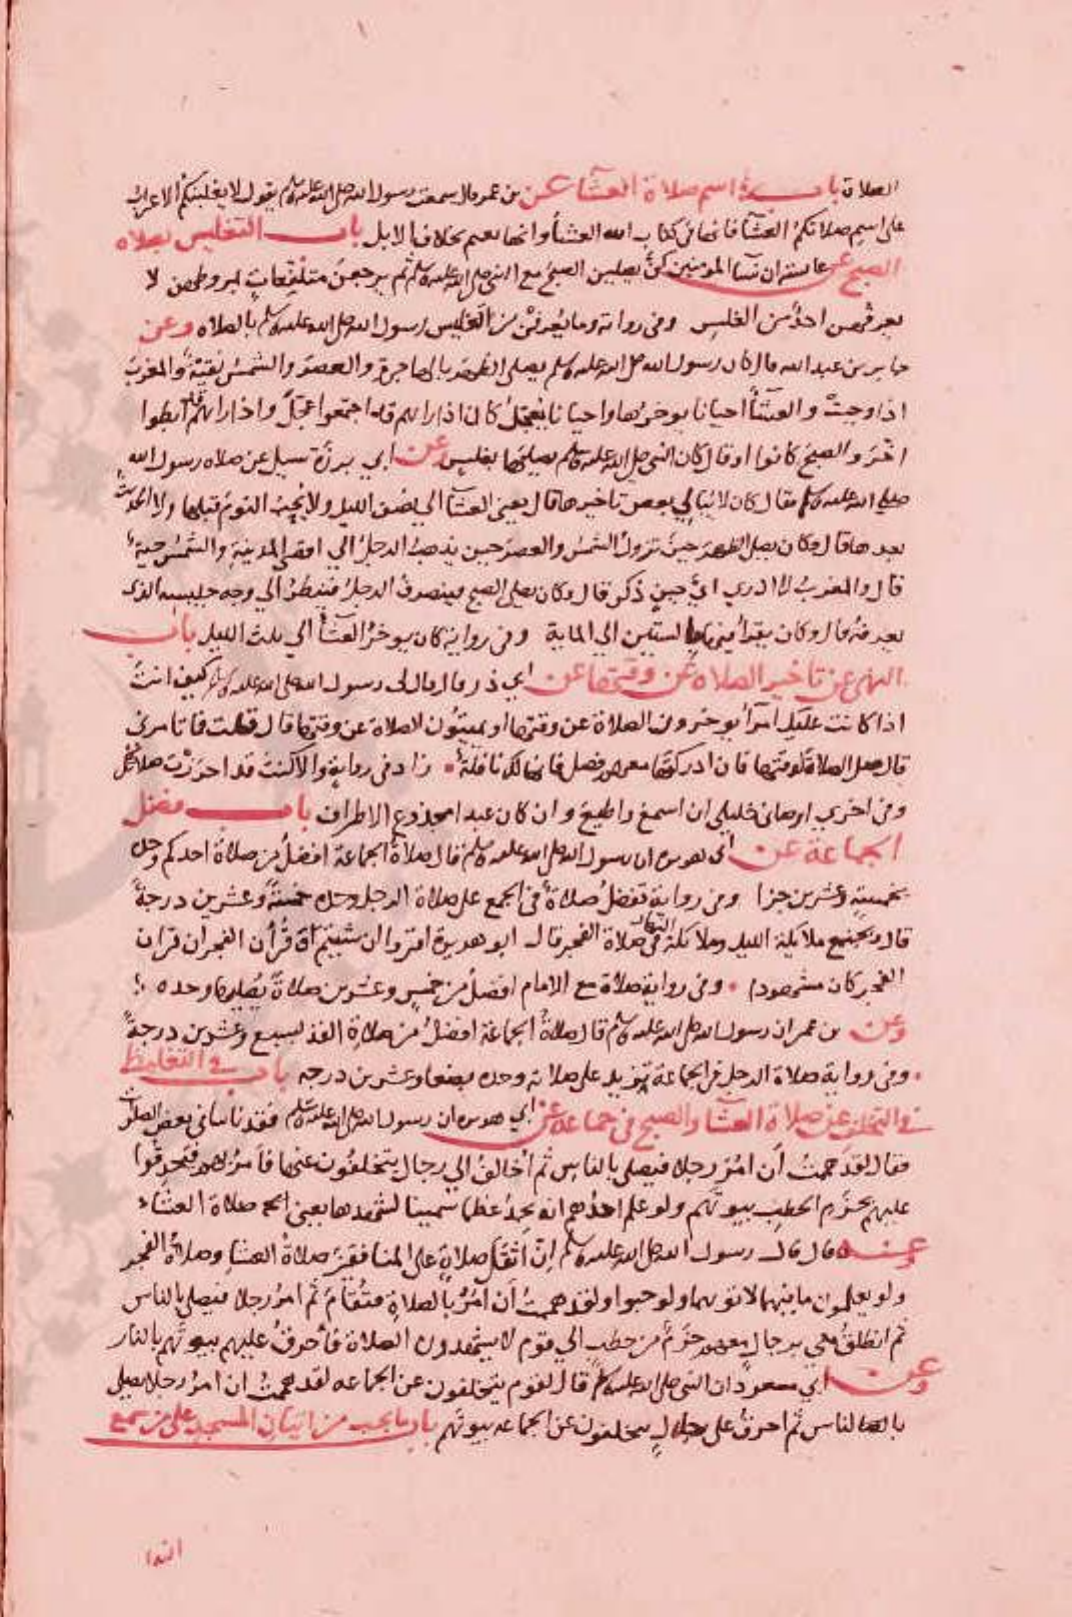 الصلاة باب في اسم صلاة العشا عن بن عمر قال سمعت رسول الله صلى الله عليه وسلم يقول لا يغلبنكم الاعراب
على اسم صلاتكم العشآ فانها في كتاب الله العشآ وانها تعتم بحلاف الابل باب التغليس بصلاه
الصبح عن عايشة ان نسآ المومنين كنّ يصلين الصبح مع النبي صلى الله عليه وسلم ثم يرجعن متلفعات بمروطهن لا
يعرفهن احدٌ من الغلس وفي رواية وما يُعرفن من تغليس رسول الله صلى الله عليه وسلم بالصلاه وعن
جابر بن عبد الله قال كان رسول الله صلى الله عليه وسلم يصلي الظهر بالهاجرة والعصر والشمسُ نقيةٌ والمغربَ
اذا وجبتْ والعشآ احيانا يوخرُها واحيانا يُعجّلُ كان اذا راهم قد اجتمعوا عجّل واذا راهم قد ابطوا
اخّرَ والصبحَ كانوا او قال كان النبي صلى الله عليه وسلم يصليها بغلس وعن ابي برزة سيل عن صلاه رسول الله
صلى الله عليه وسلم فقال كان لا يُبالي بعض تاخيرها قال يعني العشآ الي نصف الليل ولا يُحِبُّ النومَ قبلها ولا الحديث
بعدها قال وكان يصلي الظهر حينَ تزولُ الشمسُ والعصرَ حين يذهبُ الرجلُ الي اقصى المدينة والشمسُ حيةٌ
قال والمغربُ لا ادري ايَّ حينٍ ذكر قال وكان يصلي الصبح فينصرفُ الرجلُ فينظرُ الي وجه جليسه الذي
يعرفه قال وكان يقرأ فيها بالستين الي الماية وفي رواية كان يوخرُ العشآ الي ثلث الليل باب
النهي عن تاخير الصلاه عن وقتها عن ابي ذر قال قال لي رسول الله صلى الله عليه وسلم كيف انت
اذا كانت عليك امرآ يوخرون الصلاة عن وقتها او يميتون الصلاة عن وقتها قال قلت فما تامرني
قال صل الصلاة لوقتها فان ادركتها معهم فصل فانها لك نافلةٌ زاد في رواية والا كنت قد احرزْت صلاتك
وفي اخري اوصاني خليلي ان اسمعَ واطيعَ وان كان عبدا مجدوع الاطراف باب فضل
الجماعة عن ابي هريره ان رسول الله صلى الله عليه وسلم قال صلاةُ الجماعة افضلُ من صلاة احدكم وحده
بخمسةٍ وعشرين جزا وفي رواية تفضلُ صلاةٌ في الجمع على صلاة الرجل وحده خمسةً وعشرين درجةً
قال وتجتمع ملايكة الليل وملايكة النهار في صلاة الفجر قال ابو هريرة اقروا ان شيتم وقرآن الفجر ان قران
الفجر كان مشهودا وفي رواية صلاة مع الامام افضلُ من خمسٍ وعشرين صلاةً يُصليها وحده
وعن بن عمر ان رسول الله صلى الله عليه وسلم قال صلاةُ الجماعة افضلُ من صلاة الفذ بسبع وعشرين درجةً
وفي رواية صلاة الرجل في الجماعة تزيد على صلاته وحده بضعا وعشرين درجه باب في التغليظ
في التخلف عن صلاة العشآ والصبح في جماعة عن ابي هريره ان رسول الله صلى الله عليه وسلم فقد ناسا في بعض الصلوات
فقال لقد هممتُ أن امُرَ رجلا فيصلي بالناس ثم أخالفُ الي رجال يتخلفون عنها فآمرُ بهم فيحرقوا
عليهم بحزم الحطب بيوتهم ولو علم احدُهم انه يجدُ عظما سمينا لشهدها يعني صلاة العشآء
وعنه قال قال رسول الله صلى الله عليه وسلم إنّ اثقلَ صلاةٍ على المنافقينَ صلاةُ العشآ وصلاةُ الفجر
ولو يعلمون ما فيهما لاتوهما ولو حبوا ولقد هممتُ أن آمُرَ بالصلاةِ فتُقامَ ثم امُرَ رجلا فيصلي بالناس
ثم انطلقُ معي برجالٍ معهم حزمٌ من حطب الي قوم لا يشهدون الصلاة فأحرقُ عليهم بيوتهم بالنار
وعن ابي مسعود ان النبي صلى الله عليه وسلم قال لقوم يتخلفون عن الجماعه لقد هممتُ ان امُرَ رجلا يصلي
بالناس ثم احرقُ على رجالٍ يتخلفون عن الجماعه بيوتهم باب ما يجب من اتيان المسجد على من سمع
الندا